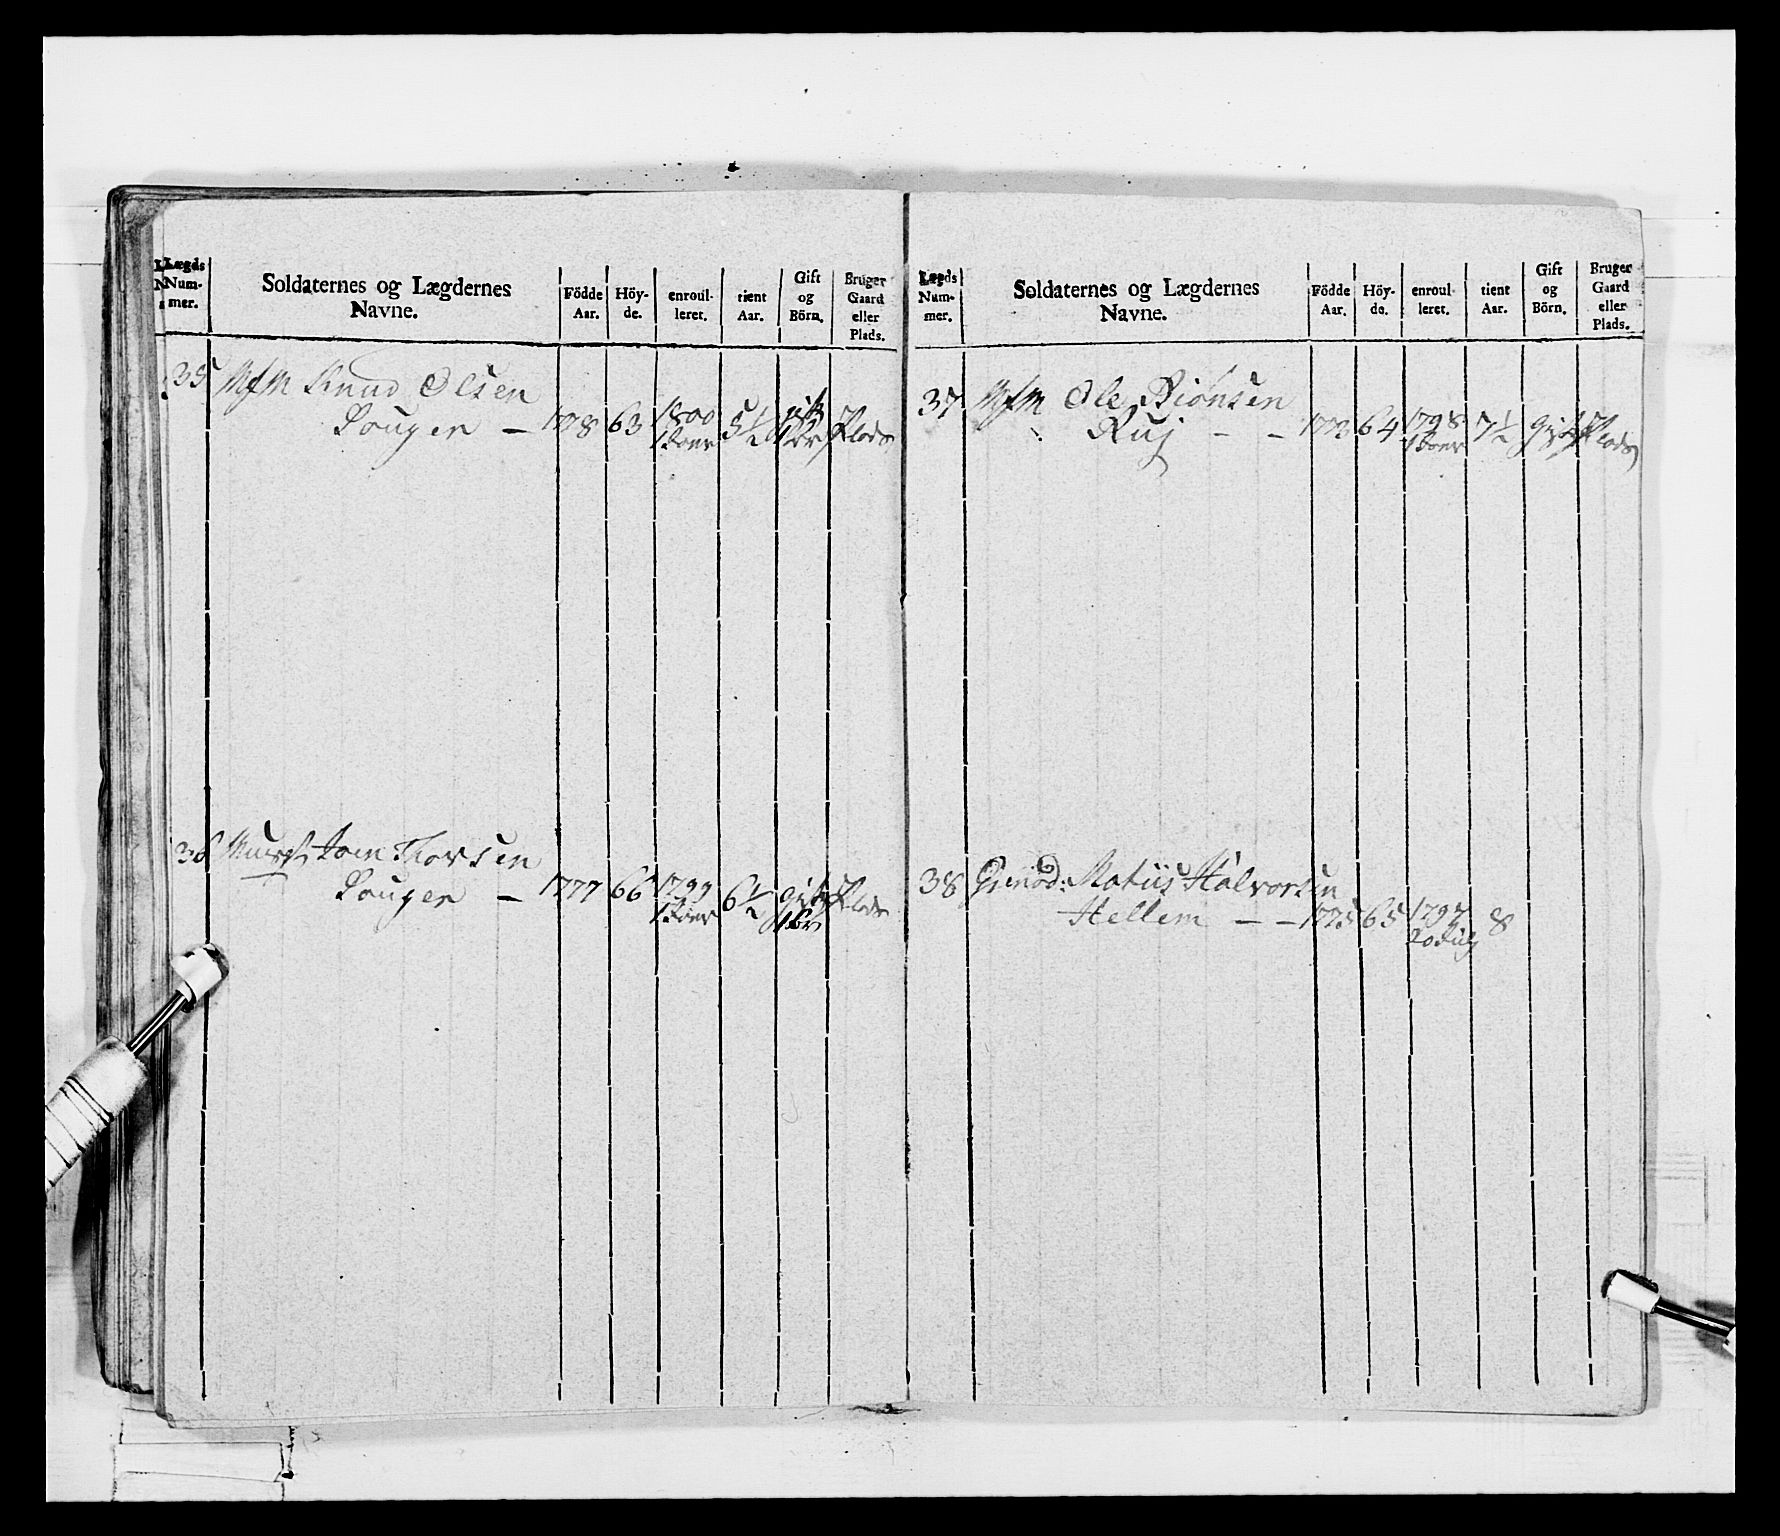 Lægds Num- mer.
Soldaternes og Lægdernes Navne.
Födde Aar.
Höy- de.
enroul- leret.
tient Aar.
Gift og Börn.
Bruger Gaard eller Plads.
35 Knud Olsen
1778 63 1800 5½ gift Plads
36 Thorsen
1777 66 1797 6½ gift Plads
Lægds Num- mer.
Soldaternes og Lægdernes Navne.
Födde Aar.
Höy- de.
enroul- leret.
tient Aar.
Gift og Börn.
Bruger Gaard eller Plads.
37 Ole Biönsen
Ruj – – 1773 64 1798 7½ Gift Plads
38 Grenad: Matiis Halvorsen
Hellem – – 1775 65 1797 8
20 July